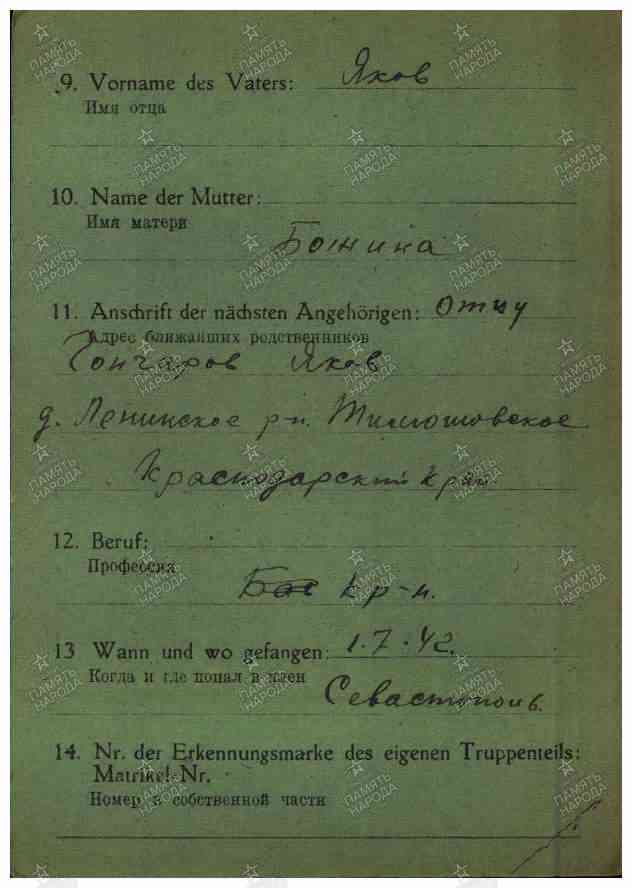 9. Vorname des Vaters: Яков
Имя отца
10. Name der Mutter:
Имя матери
Божина
11. Anschrift der nächsten Angehörigen: отцу
Адрес ближайших родственников
Гончаров Яков
д. Ленинское р-н. Тимошовское
Краснодарский край
12. Beruf:
Профессия
кр-н.
13 Wann und wo gefangen: 1.7.42.
Когда и где попал в плен
Севастополь.
14. Nr. der Erkennungsmarke des eigenen Truppenteils:
Matrikel-Nr.
Номер в собственной части
ПАМЯТЬ НАРОДА